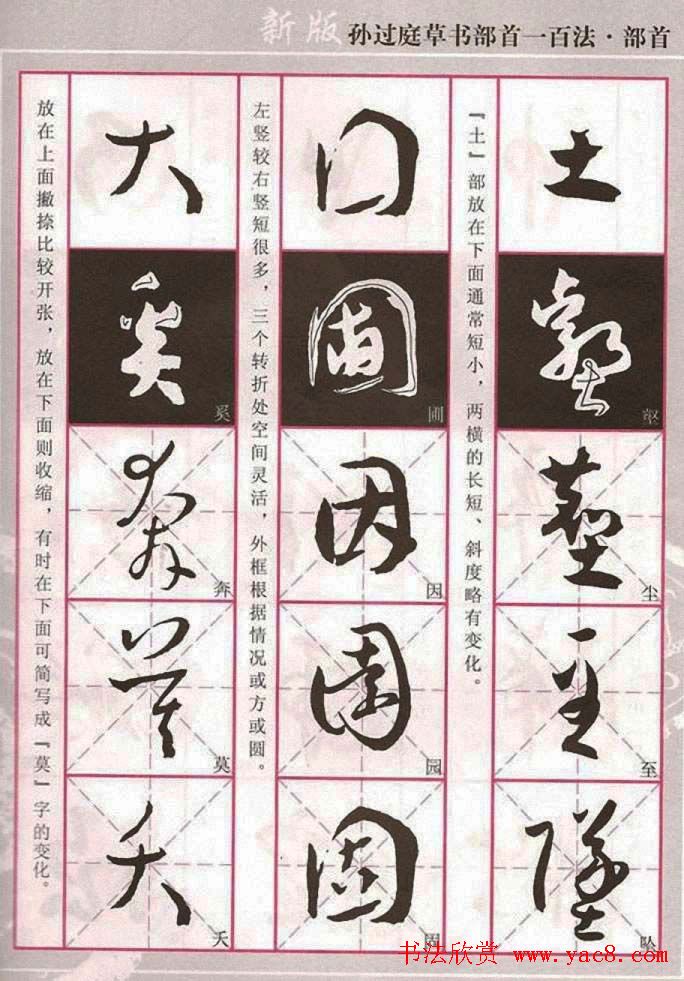 新版 孙过庭草书部首一百法·部首
土
壑
尘
至
坠
『土』部放在下面通常短小,两横的长短、斜度略有变化。
囗
圃
因
园
固
左竖较右竖短很多,三个转折处空间灵活,外框根据情况或方或圆。
大
奚
奔
莫
夭
放在上面撇捺比较开张,放在下面则收缩,有时在下面可简写成『莫』字的变化。
书法欣赏 www.yac8.com